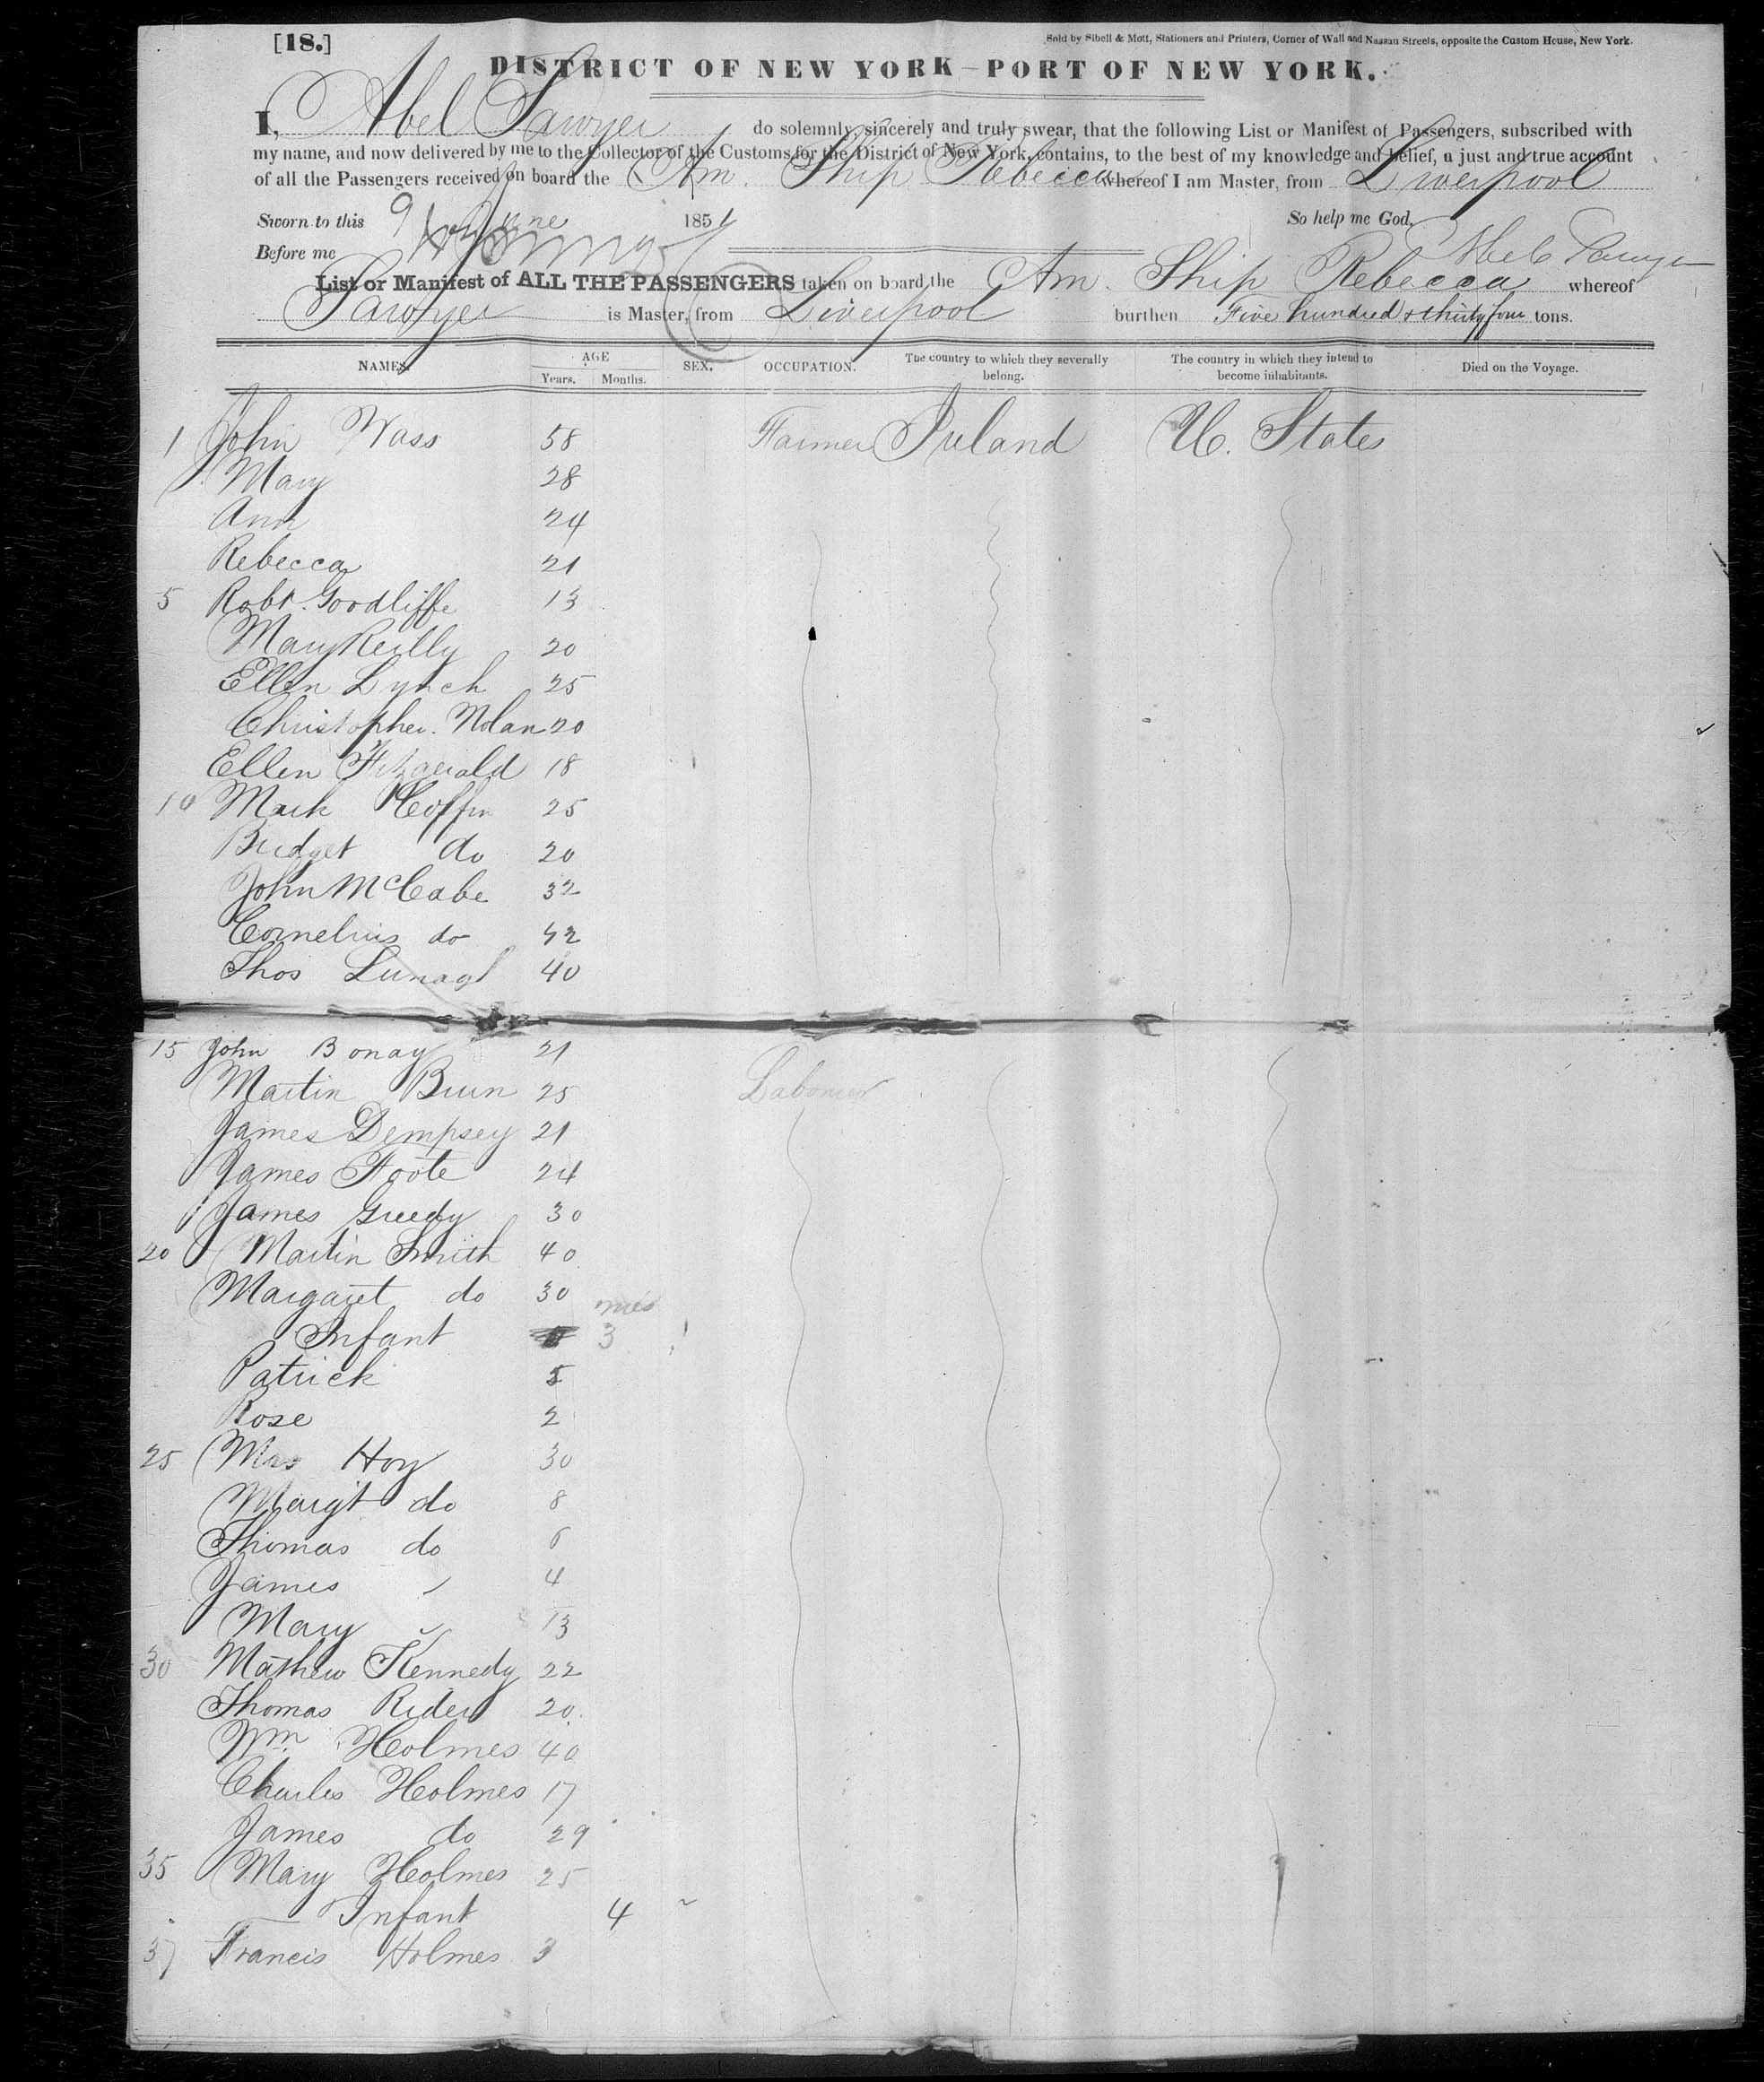 [18.]
Sold by Sibell & Mott, Stationers and Printers, Corner of Wall and Nassau Streets, opposite the Custom House, New York.
DISTRICT OF NEW YORK—PORT OF NEW YORK.
I, Abel Sawyer do solemnly, sincerely and truly swear, that the following List or Manifest of Passengers, subscribed with
my name, and now delivered by me to the Collector of the Customs for the District of New York, contains, to the best of my knowledge and belief, a just and true account
of all the Passengers received on board the Am. Ship Rebecca whereof I am Master, from Liverpool
Sworn to this 9 June 1851 So help me God.
Before me Abel Sawyer
List or Manifest of ALL THE PASSENGERS taken on board the Am. Ship Rebecca whereof
Sawyer is Master, from Liverpool burthen Five hundred & thirty four tons.
NAMES. AGE Years. Months. SEX. OCCUPATION. The country to which they severally belong. The country in which they intend to become inhabitants. Died on the Voyage.
1 John Wass 58 Farmer Ireland U. States
Mary 28
Ann 24
Rebecca 21
5 Robt. Goodliffe 13
Mary Reilly 20
Ellen Lynch 25
Christopher. Nolan 20
Ellen Fitzgerald 18
10 Mark Coffin 25
Bridget do 20
John McCabe 32
Cornelius do 42
Thos 40
15 John Bonay 21
Martin Brun 25 Labourer
James Dempsey 21
James Foote 24
James Greedy 30
20 Martin Smith 40
Margaret do 30 mos
Infant 3
Patrick 5
Rose 2
25 Mrs Hoy 30
Margt do 8
Thomas do 6
James 4
Mary 13
30 Mathew Kennedy 22
Thomas Rider 20
Wm. Holmes 40
Charles Holmes 17
James do 29
35 Mary Holmes 25
Infant 4
37 Francis Holmes 3